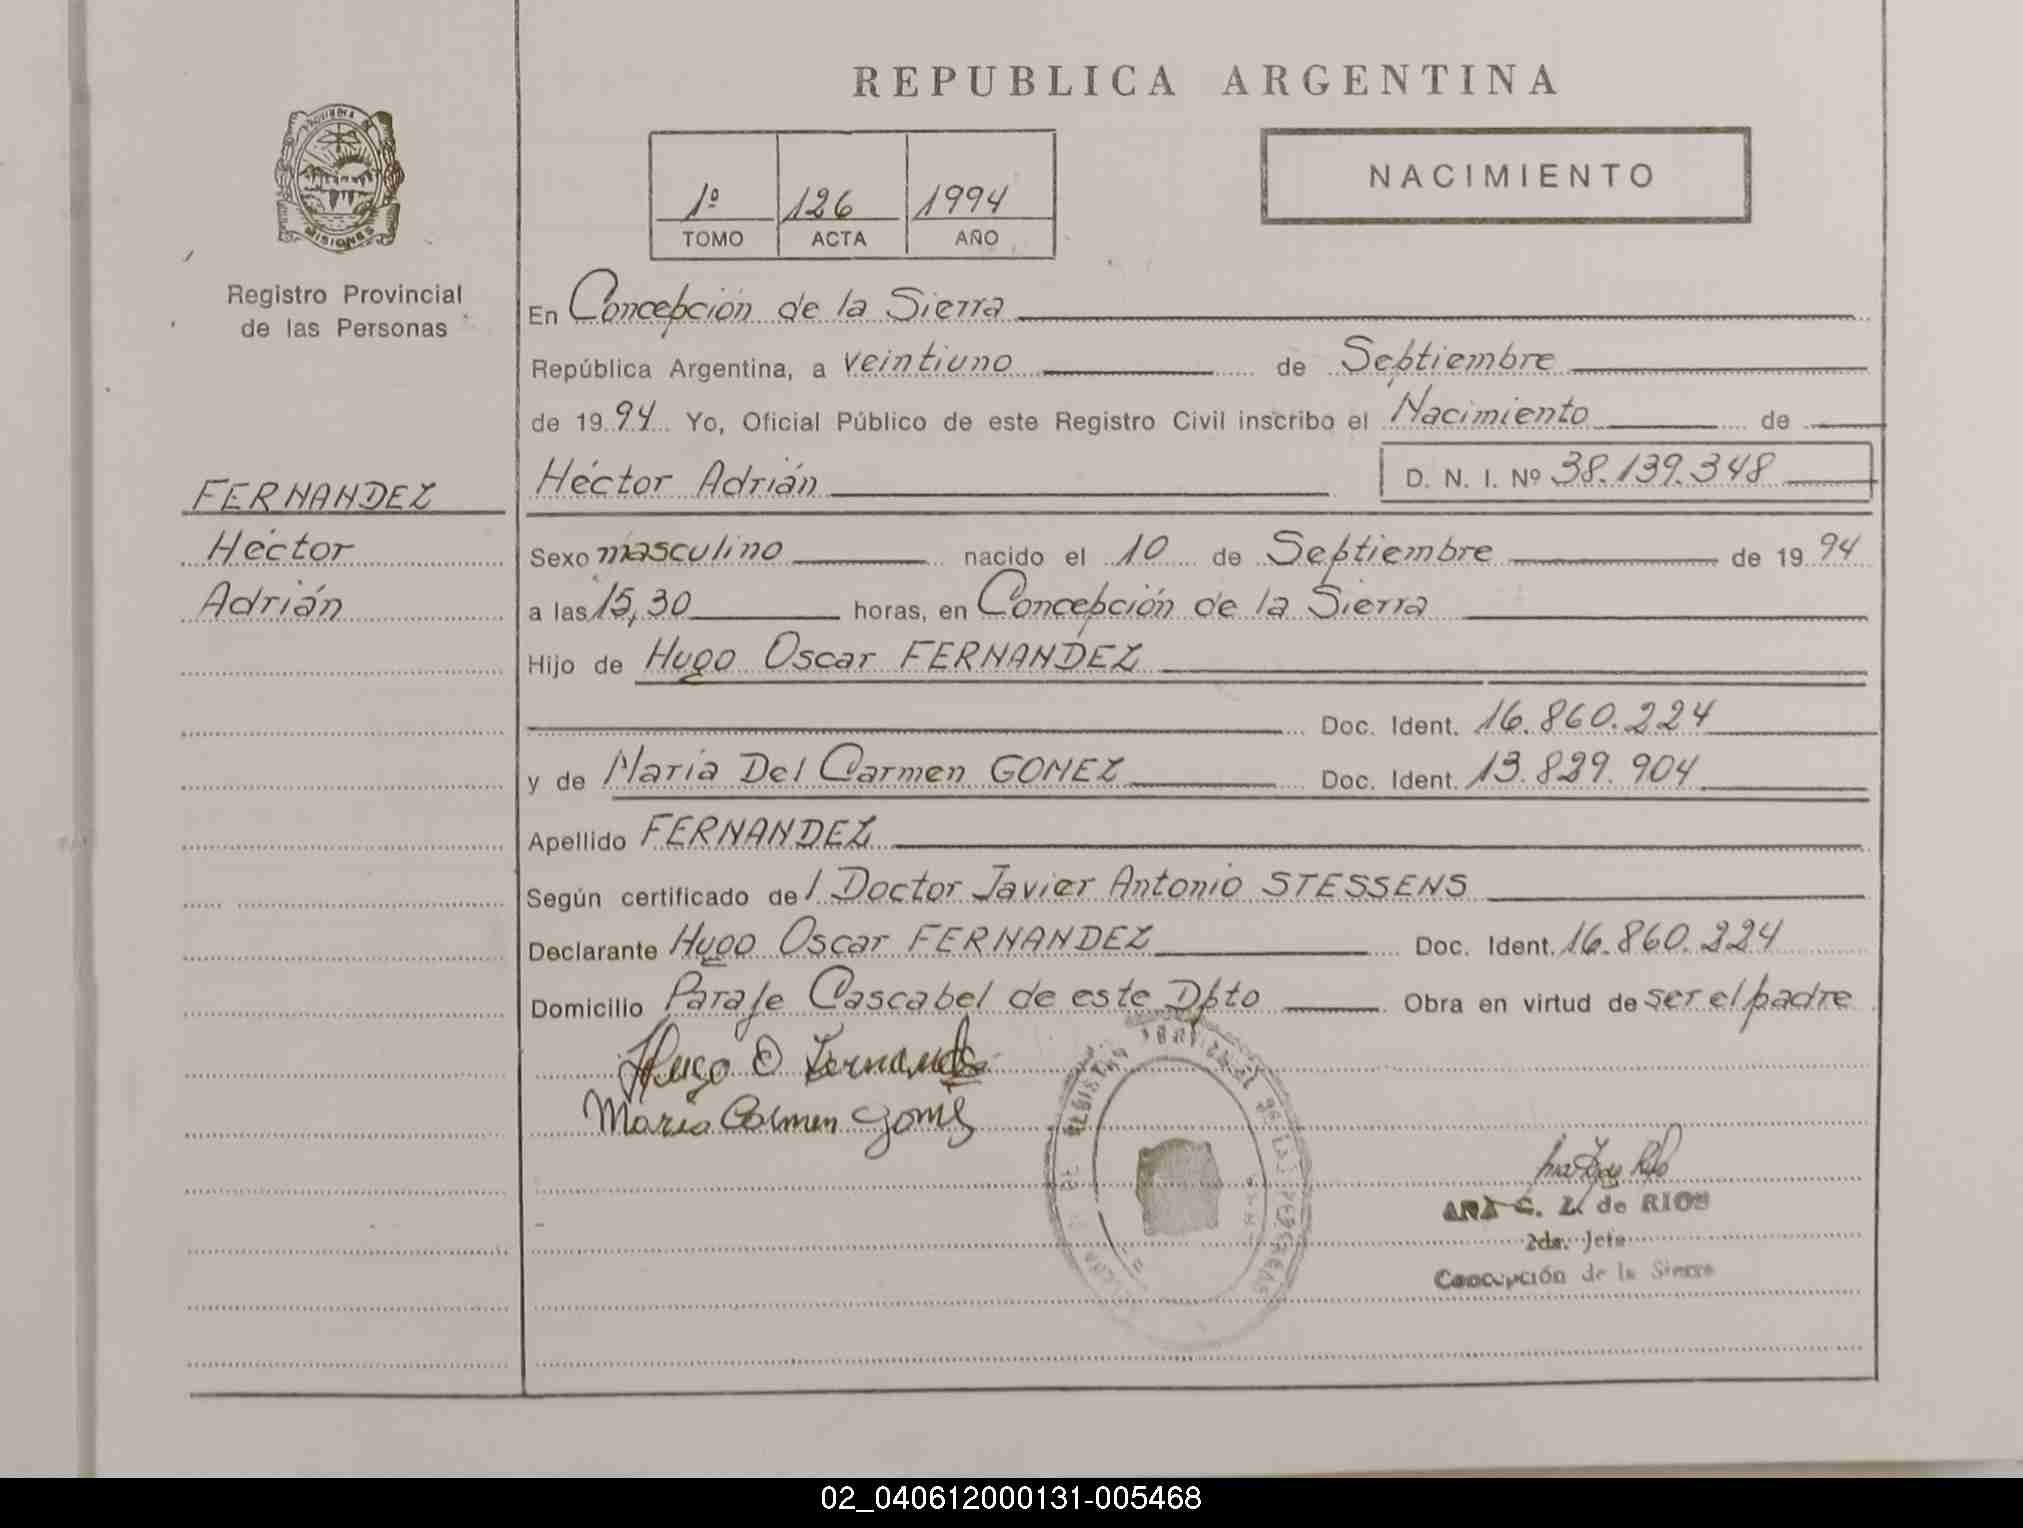 REPUBLICA ARGENTINA
NACIMIENTO
1º 126 1994
TOMO ACTA AÑO
MISIONES
Registro Provincial
de las Personas
FERNANDEZ
Héctor
Adrián
En Concepción de la Sierra
República Argentina, a veintiuno de Septiembre
de 1994 Yo, Oficial Público de este Registro Civil inscribo el Nacimiento de
Héctor Adrián D. N. I. Nº 38.139.348
Sexo masculino nacido el 10 de Septiembre de 1994
a las 15,30 horas, en Concepción de la Sierra
Hijo de Hugo Oscar FERNANDEZ
Doc. Ident. 16.860.224
y de Maria Del Carmen GOMEZ Doc. Ident. 13.829.904
Apellido FERNANDEZ
Según certificado del Doctor Javier Antonio STESSENS
Declarante Hugo Oscar FERNANDEZ Doc. Ident. 16.860.224
Domicilio Paraje Cascabel de este Dpto Obra en virtud de ser el padre
Hugo O Fernandez
Maria Carmen Gomez
ANA C. Z. de RIOS
2da. Jefe
Concepción de la Sierra
02_040612000131-005468